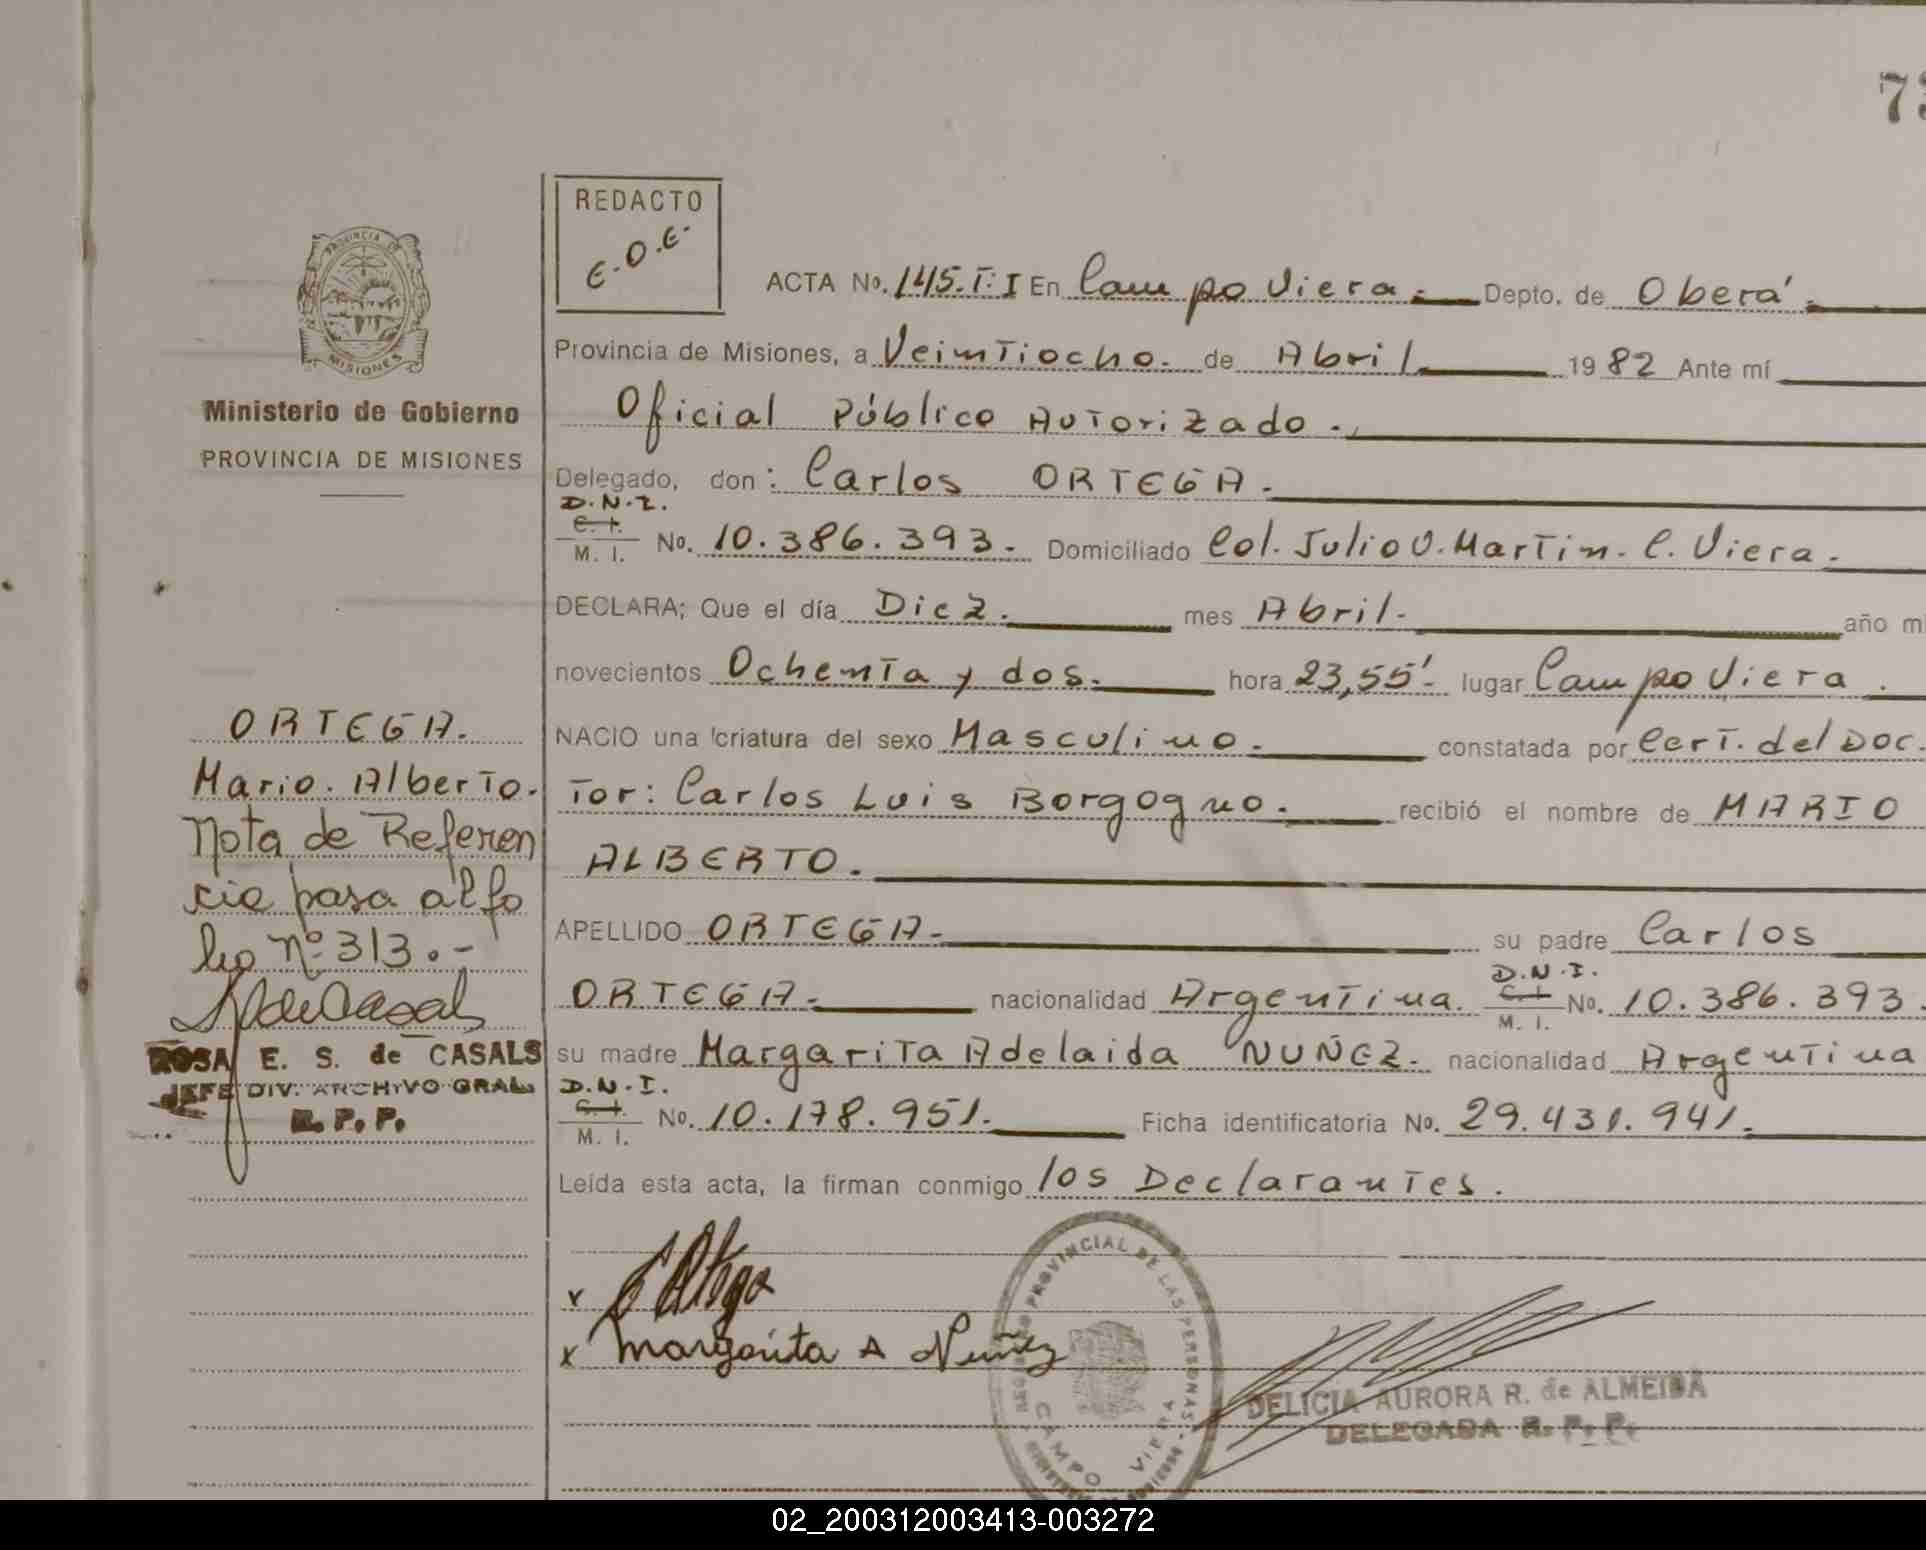 73
REDACTO
E.O.E.
ACTA No. 145.T:I En Campo Viera.- Depto. de Oberá.
Provincia de Misiones, a Veintiocho. de Abril 1982 Ante mí
Oficial Público Autorizado.
Delegado, don: Carlos ORTEGA.
D.N.I.
C. I.
M. I. No. 10.386.393.- Domiciliado Col. Julio U. Martin. C. Viera.
DECLARA; Que el día Diez. mes Abril. año mi
novecientos Ochenta y dos. hora 23,55'- lugar Campo Viera.
NACIO una criatura del sexo Masculino. constatada por Cert. del Doc.
tor: Carlos Luis Borgogno. recibió el nombre de MARIO
ALBERTO.
APELLIDO ORTEGA. su padre Carlos
ORTEGA. nacionalidad Argentina. D.N.I. C. I. M. I. No. 10.386.393.
su madre Margarita Adelaida NUÑEZ. nacionalidad Argentina
D.N.I.
C. I.
M. I. No. 10.178.951. Ficha identificatoria No. 29.431.941.
Leída esta acta, la firman conmigo los Declarantes.
x C Ortega
x Margarita A Nuñez
PROVINCIAL DE LAS PERSONAS
CAMPO VIERA
DELICIA AURORA R. de ALMEIDA
DELEGADA R. P. P.
PROVINCIA DE
MISIONES
Ministerio de Gobierno
PROVINCIA DE MISIONES
ORTEGA.
Mario. Alberto.
Nota de Referen
cia pasa al fo
lio Nº 313.-
ROSA E. S. de CASALS
JEFE DIV. ARCHIVO GRAL
R. P. P.
02_200312003413-003272